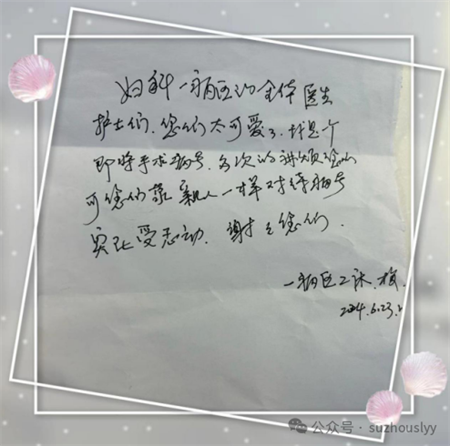 妇科一病区的全体医生
护士们,您们太可爱了,我是个
即将手术病号,多次的麻烦您们
可您们像亲人一样对待病号
实在受感动。谢谢您们。
一病区2床.
2024.6.23.
公众号 · suzhouslyy